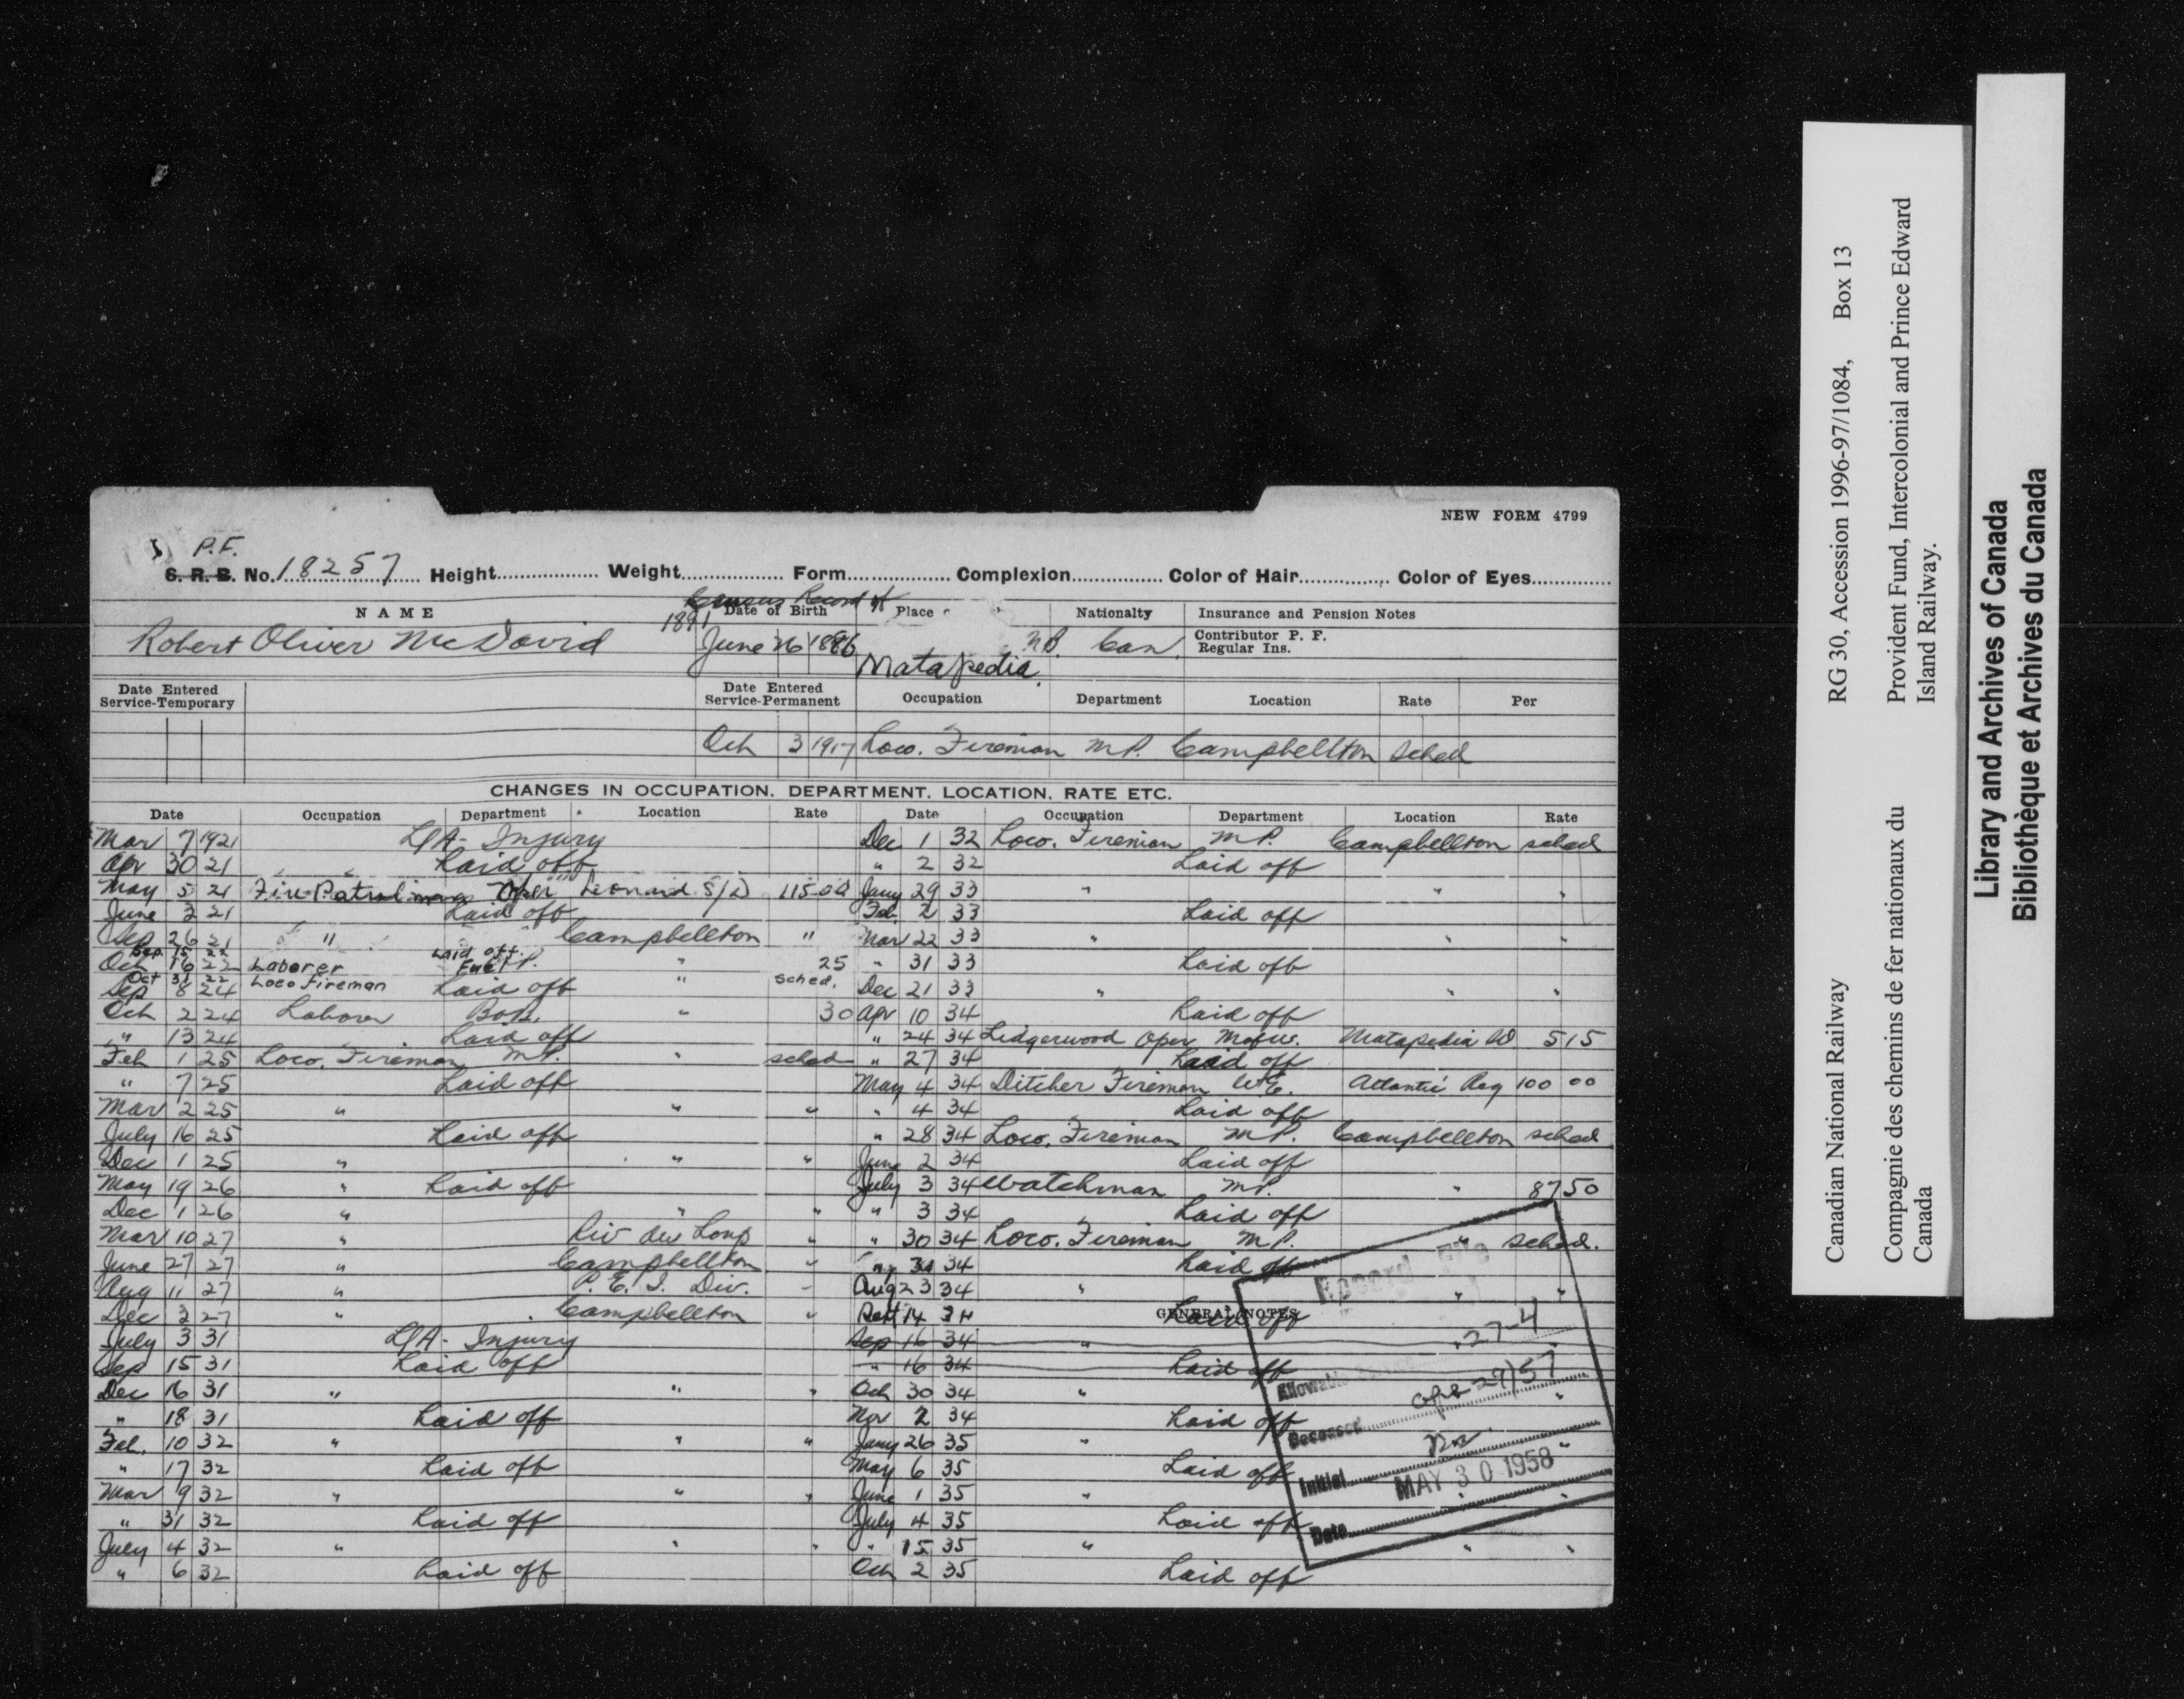 NEW FORM 4799
P.F.
S. R. B. No. 18257 Height Weight Form Complexion Color of Hair Color of Eyes
Census Record of
NAME Date of Birth Place Nationalty Insurance and Pension Notes
1891
Robert Oliver McDavid June 26 1886 N.B. Can. Contributor P. F.
Regular Ins.
Matapedia.
Date Entered Service-Temporary Date Entered Service-Permanent Occupation Department Location Rate Per
Oct 3 1917 Loco. Fireman M.P. Campbellton sched
CHANGES IN OCCUPATION, DEPARTMENT, LOCATION, RATE ETC.
Date Occupation Department Location Rate
Mar 7 1921 L/A - Injury
Apr 30 21 Laid off
May 5 21 Fire-Patrolman Oper Leonard S/D 115.00
June 3 21 Laid off
Sep 26 21 " Campbellton "
Sep 15 22 Laid off.
Oct 16 22 Laborer " 25
Oct 31 22 Loco Fireman " sched.
Sep 8 24 Laid off
Oct 2 24 Laborer " 30
" 13 24 Laid off
Feb 1 25 Loco. Fireman M.P. " sched
" 7 25 Laid off
Mar 2 25 " " "
July 16 25 Laid off
Dec 1 25 " " "
May 19 26 " Laid off
Dec 1 26 " " "
Mar 10 27 " Riv du Loup "
June 27 27 " Campbellton "
Aug 11 27 " P. E. I. Div. "
Dec 3 27 " Campbellton "
July 3 31 L/A - Injury
Sep 15 31 Laid off
Dec 16 31 " " "
" 18 31 Laid off
Feb. 10 32 " " "
" 17 32 Laid off
Mar 9 32 " " "
" 31 32 Laid off
July 4 32 " " "
" 6 32 Laid off
Date Occupation Department Location Rate
Dec 1 32 Loco. Fireman M.P. Campbellton sched
" 2 32 Laid off
Jany 29 33 " " "
Feb 2 33 Laid off
Mar 22 33 " " "
" 31 33 Laid off
Dec 21 33 " " "
Apr 10 34 Laid off
" 24 34 Lidgerwood Oper MofW. Matapedia 515
" 27 34 Laid off
May 4 34 Ditcher Fireman W.E. Atlantic Reg 100 00
" 4 34 Laid off
" 28 34 Loco. Fireman M.P. Campbellton sched
June 2 34 Laid off
July 3 34 Watchman M.P. " 87 50
" 3 34 Laid off
" 30 34 Loco. Fireman M.P. " sched.
" 31 34 Laid off
Aug 23 34 " " "
GENERAL NOTES
Sept 14 34 Laid off
Sep 16 34 " "
" 16 34 Laid off
Oct 30 34 " "
Nov 2 34 Laid off
Jany 26 35 " "
May 6 35 Laid off
June 1 35 " " "
July 4 35 Laid off
" 15 35 " " "
Oct 2 35 Laid off
Record File
27-4
Allowable
Deceased Apr 29/57
Initial
Date MAY 30 1958
Canadian National Railway RG 30, Accession 1996-97/1084, Box 13
Compagnie des chemins de fer nationaux du Canada
Provident Fund, Intercolonial and Prince Edward Island Railway.
Library and Archives of Canada
Bibliothèque et Archives du Canada